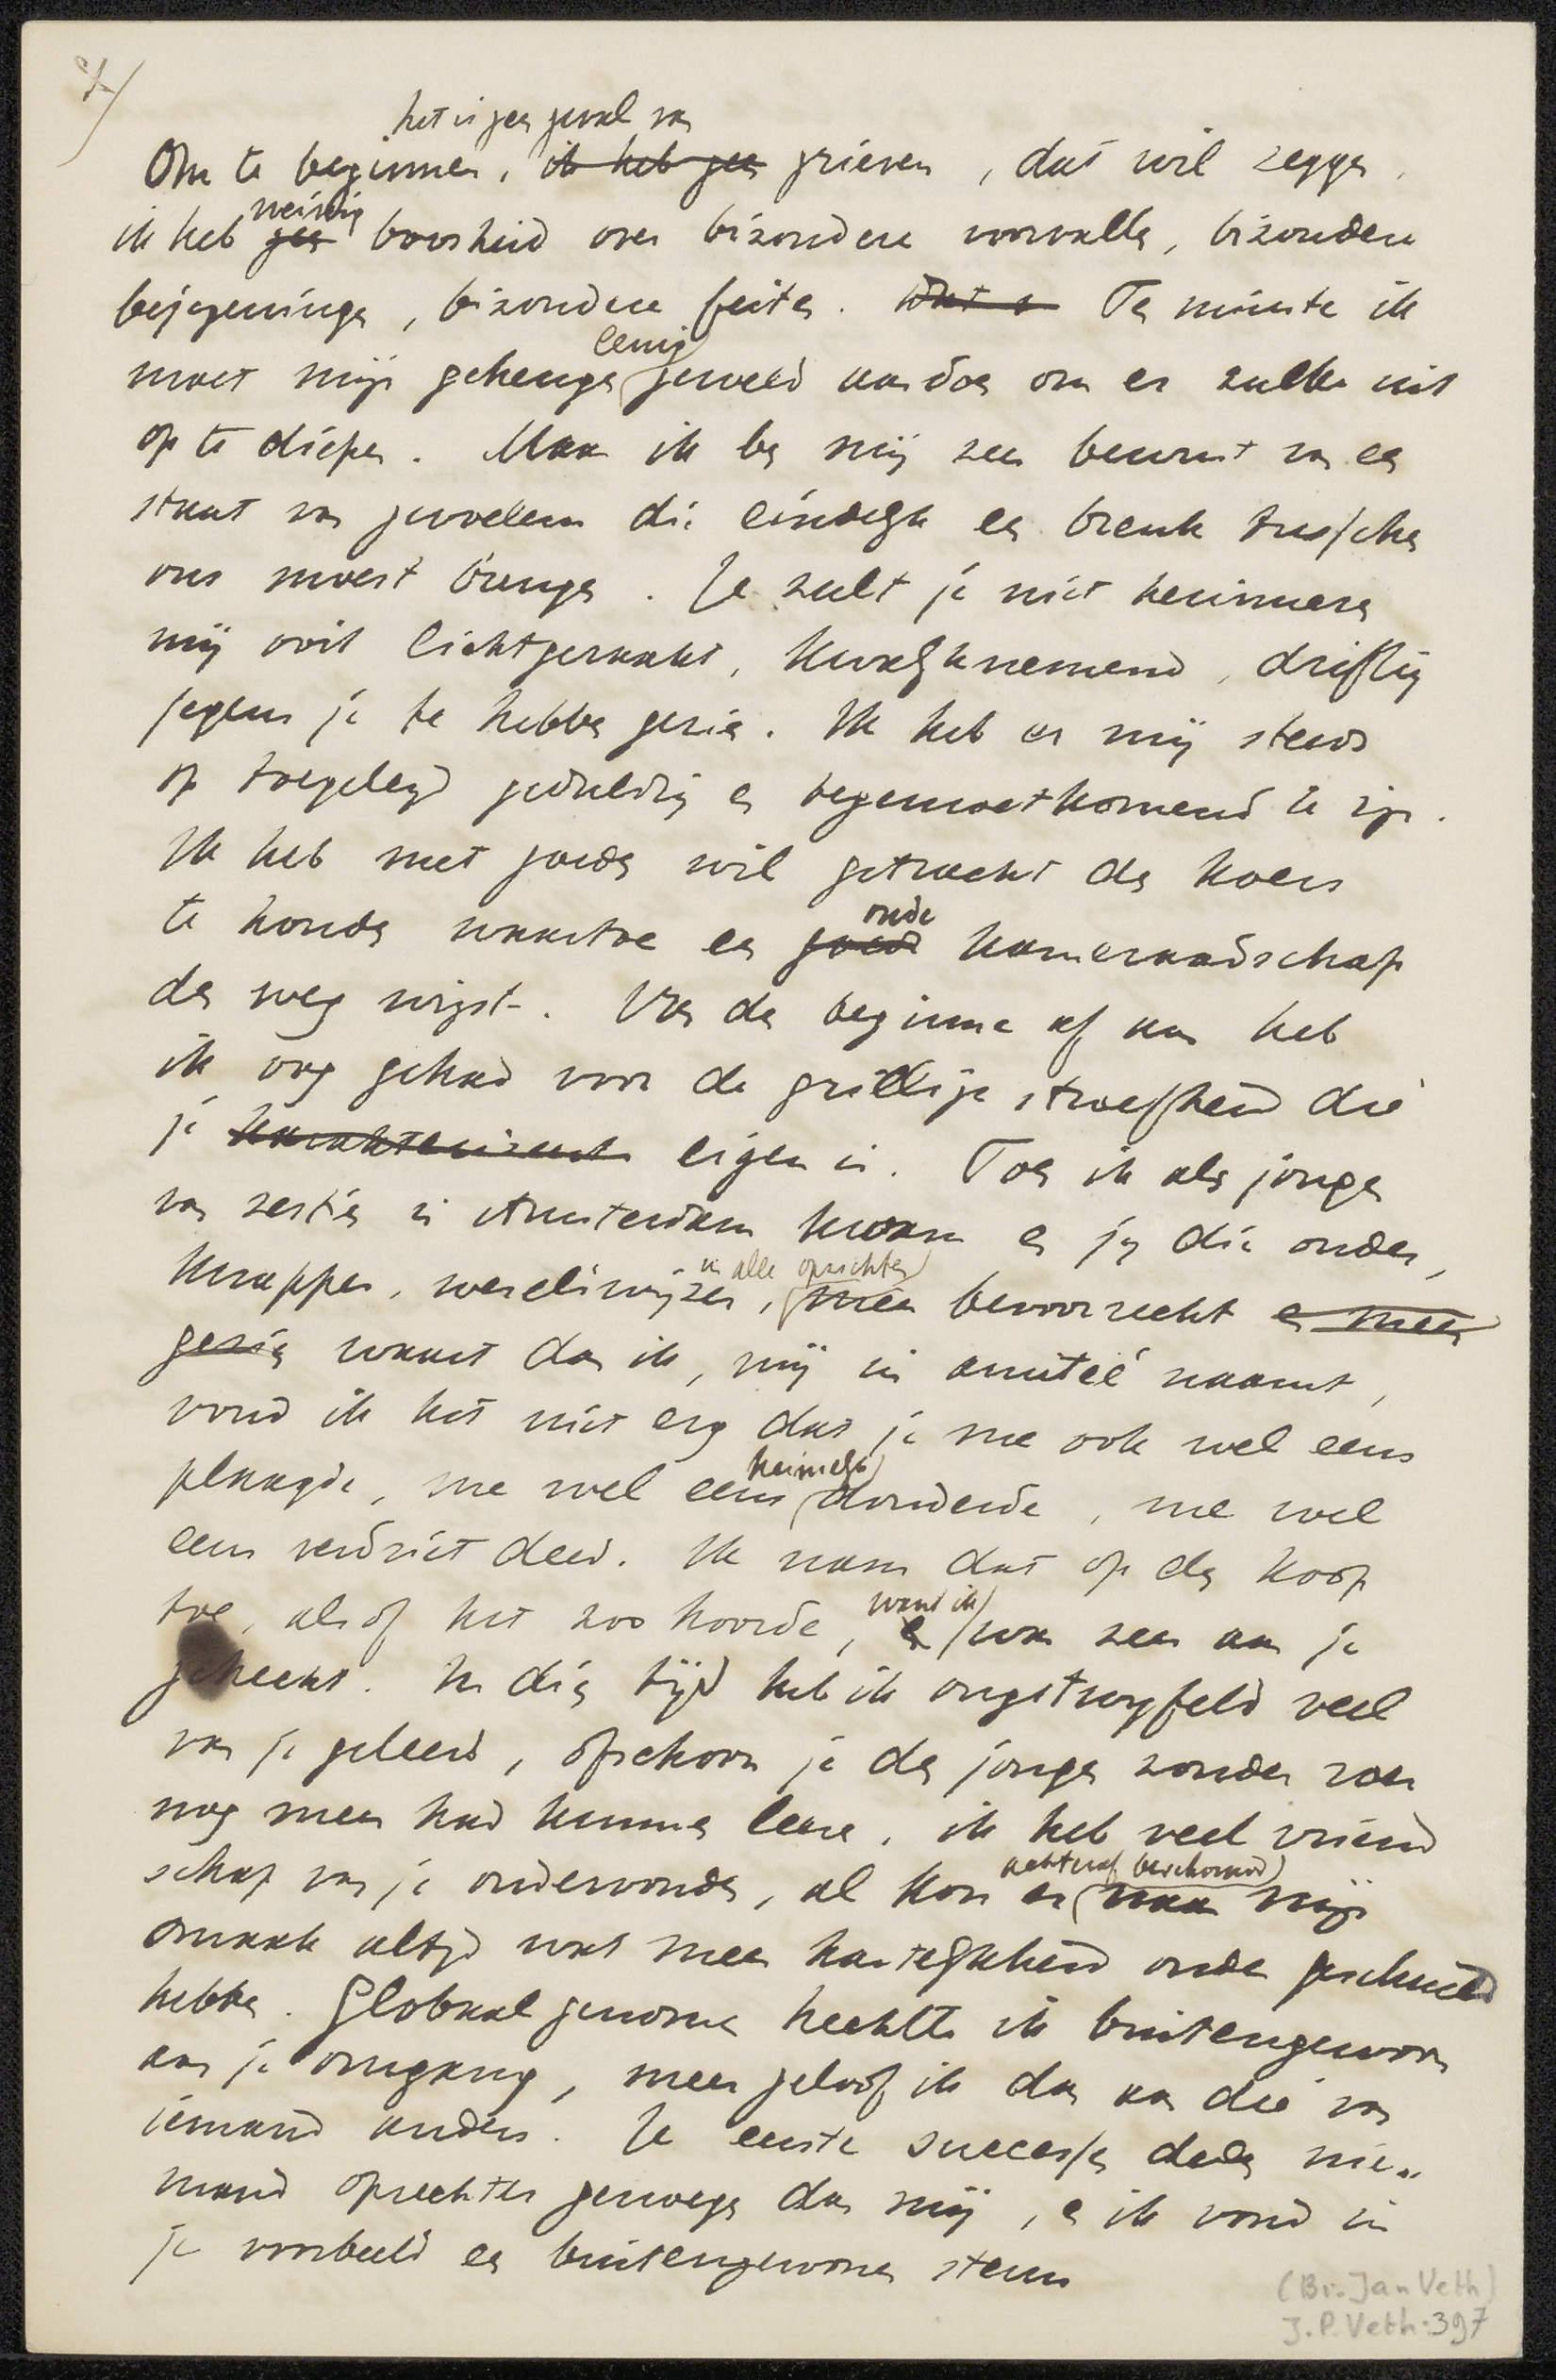 2)
het is geen geval van
Om te beginnen, ik heb geen grieven, dat wil zeggen,
weinig
ik heb geen boosheid over bizondere voorvallen, bizondere
bejegeningen, bizondere feiten. Want e Ten minste ik
eenig
moet mijn geheugen geweld aandoen om er zulke uit
op te diepen. Maar ik ben mij zeer bewust van een
staat van gevoelens die eindelijk een breuk tusschen
ons moest brengen. Je zult je niet herinneren
mij ooit lichtgeraakt, kwalijknemend, driftig
jegens je te hebben gezien. Ik heb er mij steeds
op toegelegd geduldig en tegemoetkomend te zijn.
Ik heb met goeden wil getracht den koers
oude
te houden waartoe een goede kameraadschap
den weg wijst. Van den beginne af aan heb
ik oog gehad voor de grillige stroefheid die
je karakteriseert eigen is. Toen ik als jongen
van zestien in Amsterdam kwam en jij die ouder,
in alle opzichten
knapper, wereldwijzer, meer bevoorrecht en meer
gezien waart dan ik, mij in amitié naamt,
vond ik het niet erg dat je me ook wel eens
heimelijk
plaagde, me wel eens donderde, me wel
eens verdriet deed. Ik nam dat op den koop
want ik
toe, alsof het zoo hoorde, en was zeer aan je
gehecht. In dien tijd heb ik ongetwijfeld veel
van je geleerd, ofschoon je den jongen zonder
nog meer had kunnen leeren, ik heb veel vriend
achteraf beschouwd
schap van je ondervonden, al kon er naar mijn
smaak altijd wat meer hartelijkheid onder gescholen
hebben. Globaal genomen hechtte ik buitengewoon
aan je omgang, meer geloof ik dan aan die van
iemand anders. Je eerste successen deden nie„
mand oprechter genoegen dan mij, en ik vond in
je voorbeeld een buitengewonen steun
(Br. Jan Veth)
J.P. Veth-397